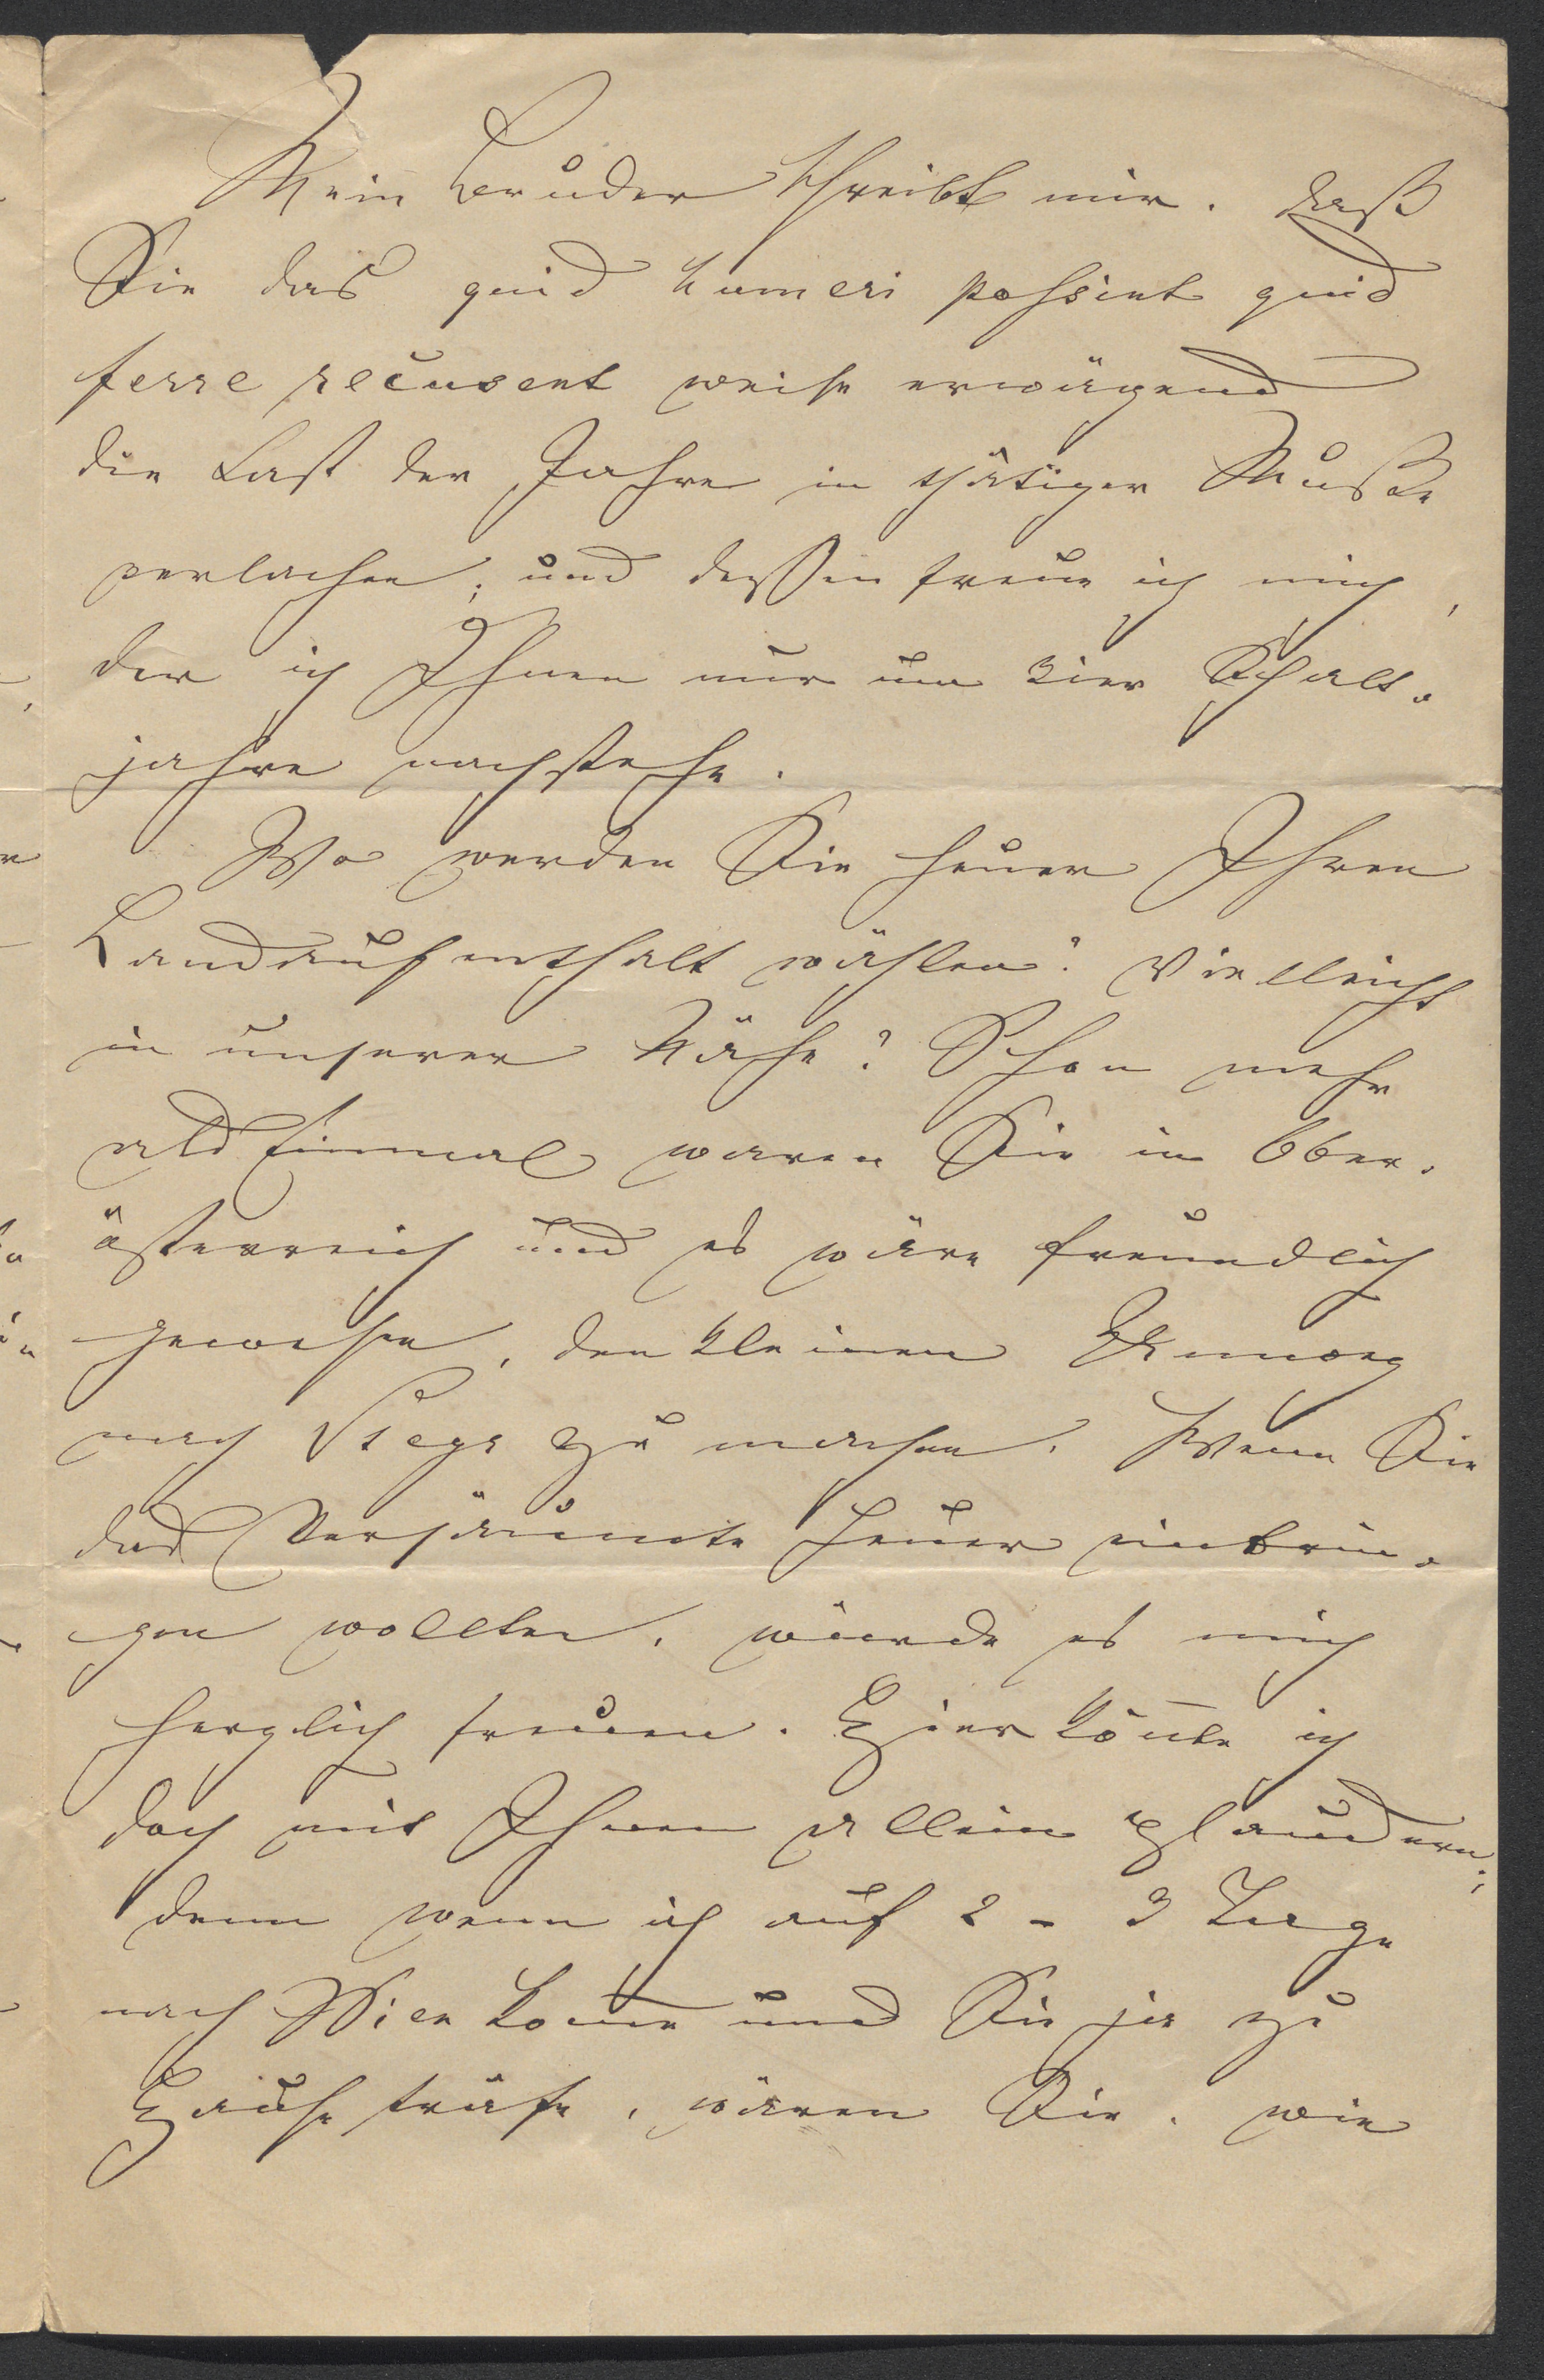 Mein Bruder schreibt mir, daß
Sie das quid humeri possint quid
ferre recusent weise erwägend
die Last der Jahre in thätiger Muße
verlachen; und dessen freue ich mich,
der ich Ihnen nur um vier Schalt-
jahre nachstehe.
Wo werden Sie heuer Ihren
Landaufenthalt wählen? Vielleicht
in unserer Nähe? Schon mehr
als Einmal waren Sie in Ober-
österreich und es wäre freundlich
gewesen, den kleinen Umweg
nach Steyr zu machen. Wenn Sie
das Versäumte heuer einbrin-
gen wollten, würde es mich
herzlich freuen. Hier kön̄te ich
doch mit Ihnen allein plaudern;
denn wenn ich auf 2 - 3 Tage
nach Wien kom̄e und Sie ja zu
Hause träfe, wären Sie, wie